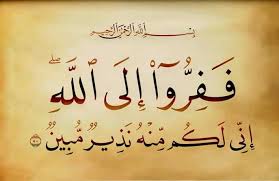 بِسْمِ اللَّهِ الرَّحْمَٰنِ الرَّحِيمِ
فَفِرُّوٓا۟ إِلَى ٱللَّهِ ۖ
إِنِّى لَكُم مِّنْهُ نَذِيرٌ مُّبِينٌ